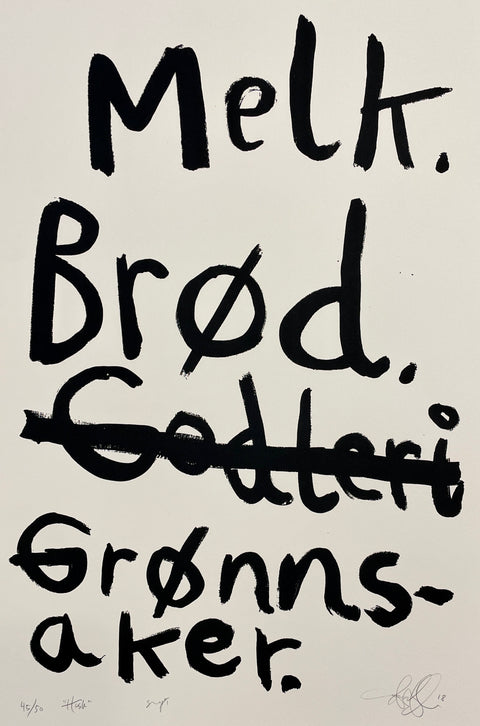 Melk.
Brød.
Godteri
Grønns-
aker.
45/50 "Husk" 18